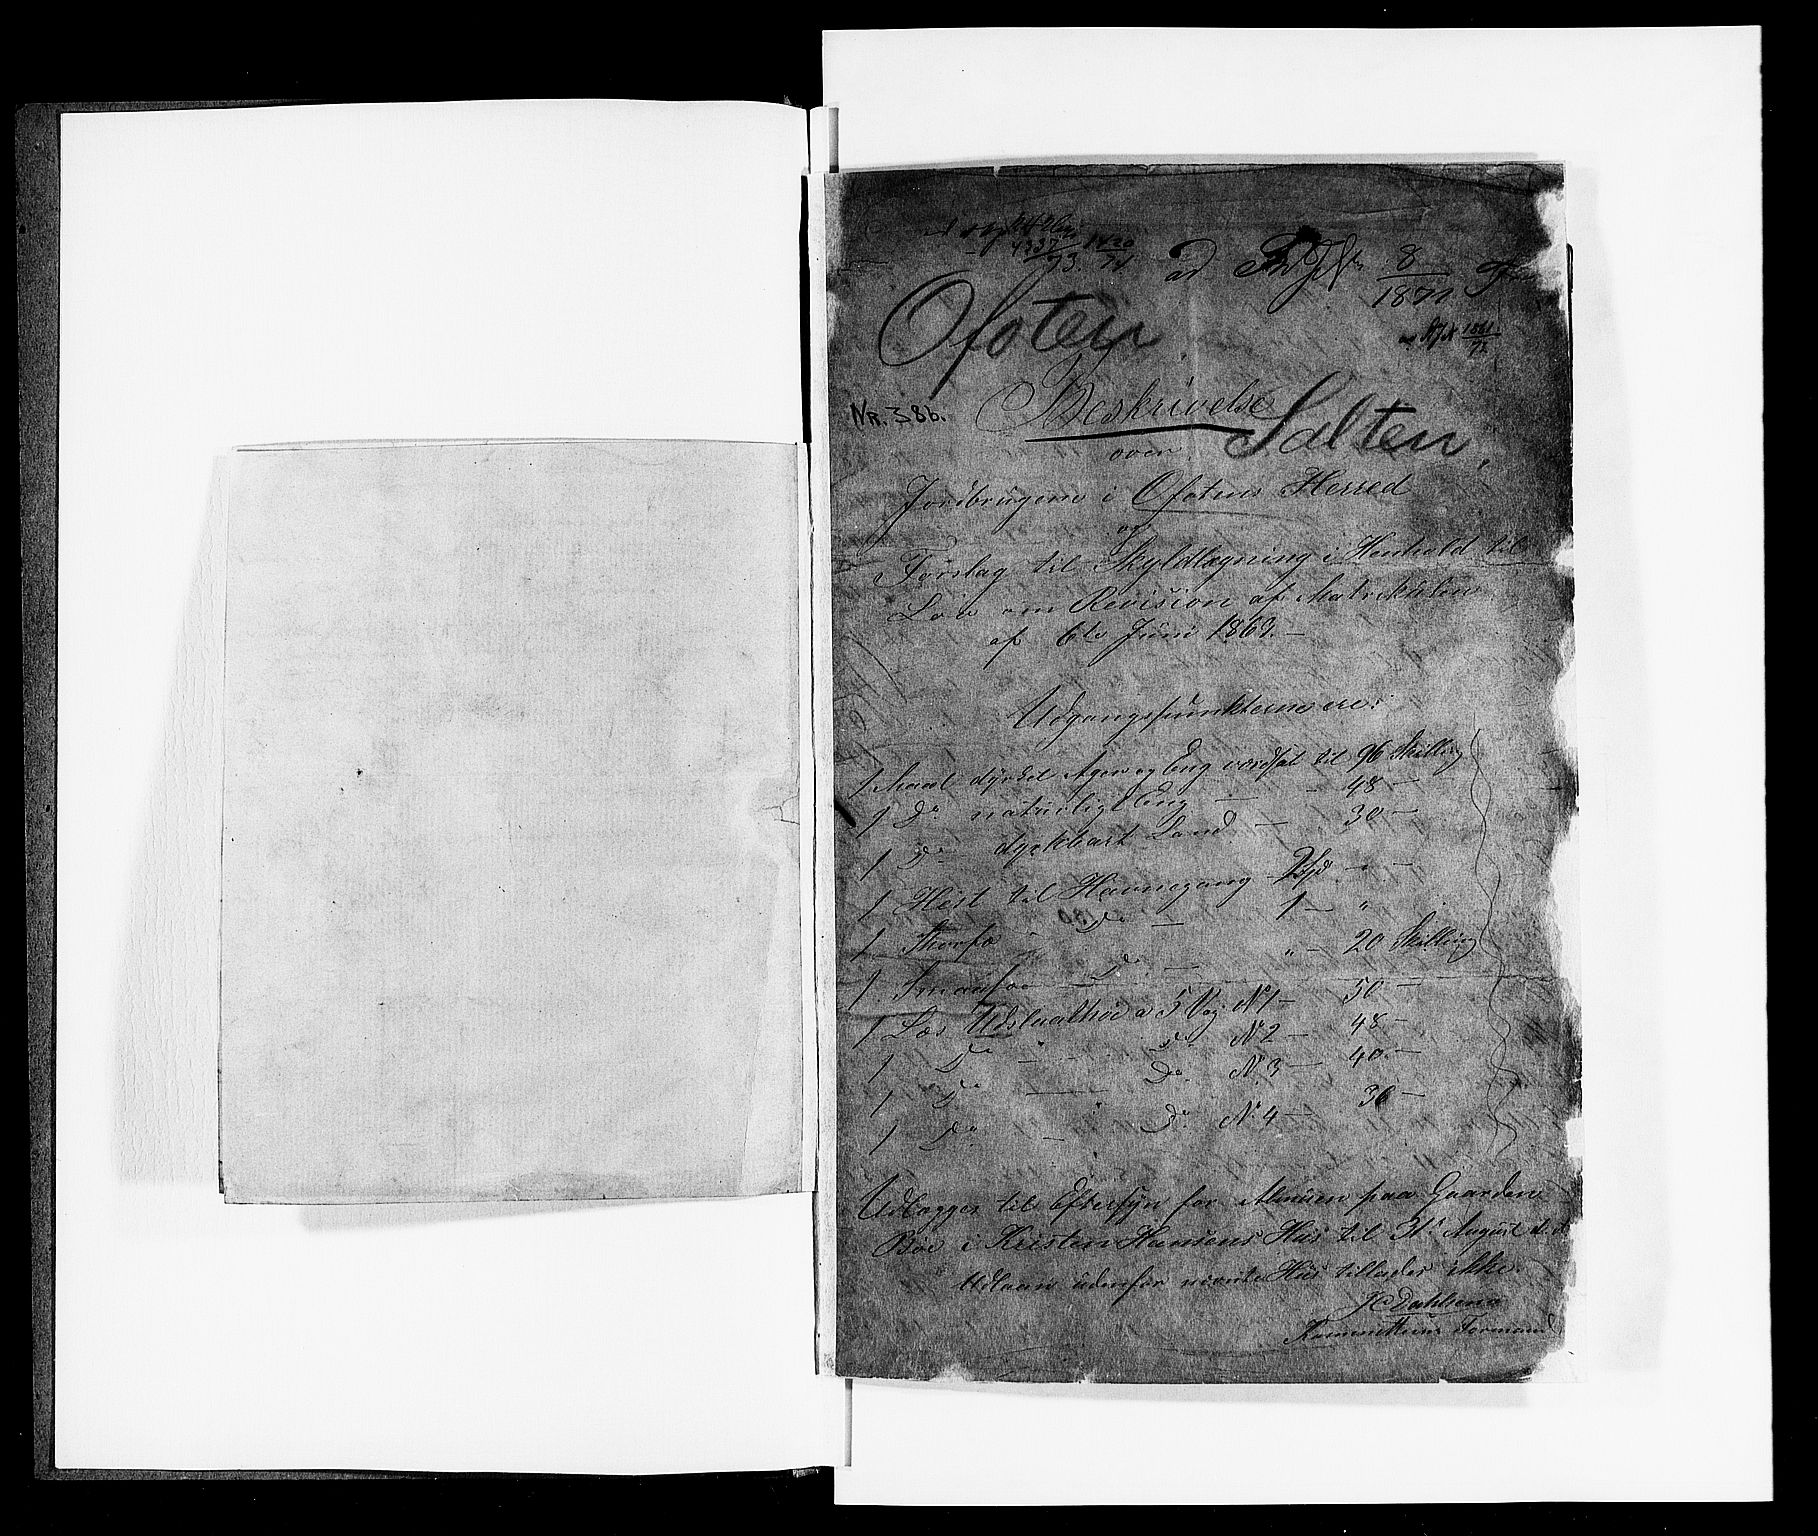 4337/73. 1420/74
ad 8/1871
Ofoten
1861/72
Nr. 38b.
Beskrivelse
Salten.
over
Jordbrugene i Ofotens Herred
og
Forslag til Skyldlægning i Henhold til
Lov om Revision af Matrikulen
af 6te Juni 1863.—
Udgangspunkterne ere:
1 Maal dyrket Ager og Eng værdsat til 96 Skilling
1 Do naturligt Eng — - 48 —
1 Do dyrkbart Land — 30 —
1 Hest til Havnegang 2 Spd. - " —
1 Storfæ - Do — 1 — "
1 Smaafæ Do — " - 20 Skilling
1 Læs Udslaathøe a 5 Vog No 1 — 50 —
1 Do - - Do No 2 — 48 —
1 Do — " Do No 3 — 40 —
1 Do - Do No 4 — 36 —
Udlægges til Eftersyn for Almuen paa Gaarden
Bøe i Kristen Hansens Hus til 31te August d. A.
Udlaan udenfor nævnte Hus tillades ikke.
J C Dahlsen
Kommittens Formand